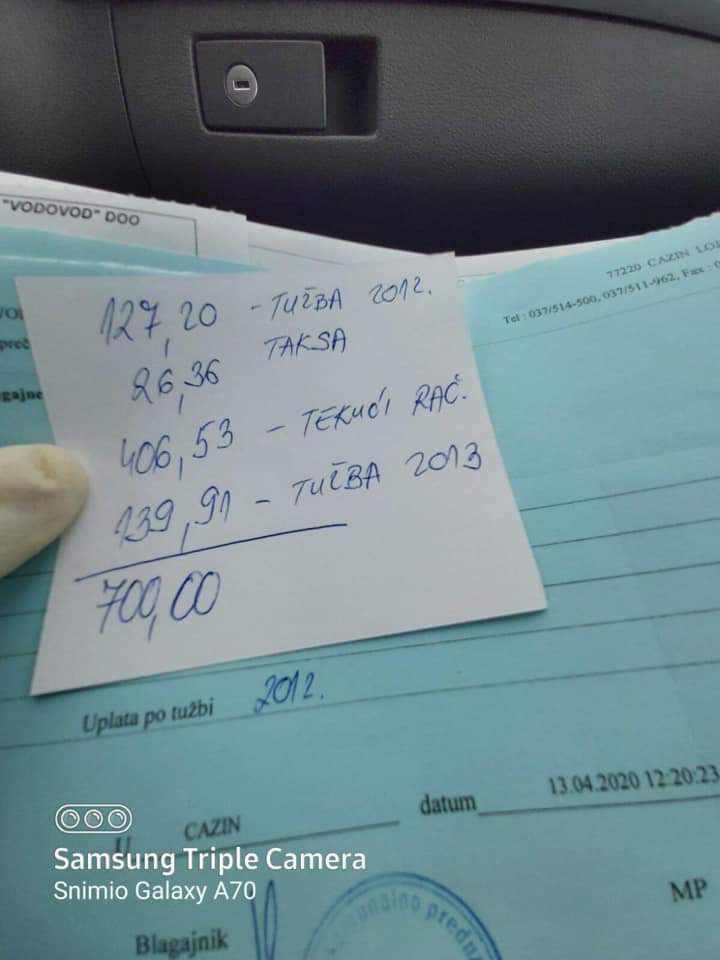 "VODOVOD" DOO
77220 CAZIN
Tel : 037/514-500, 037/511-962, Fax : 0
127,20 - TUŽBA 2012.
26,36 TAKSA
406,53 - TEKUĆI RAČ.
139,91 - TUŽBA 2013
700,00
Uplata po tužbi 2012.
CAZIN datum 13.04.2020 12:20:23
MP
Blagajnik
Samsung Triple Camera
Snimio Galaxy A70